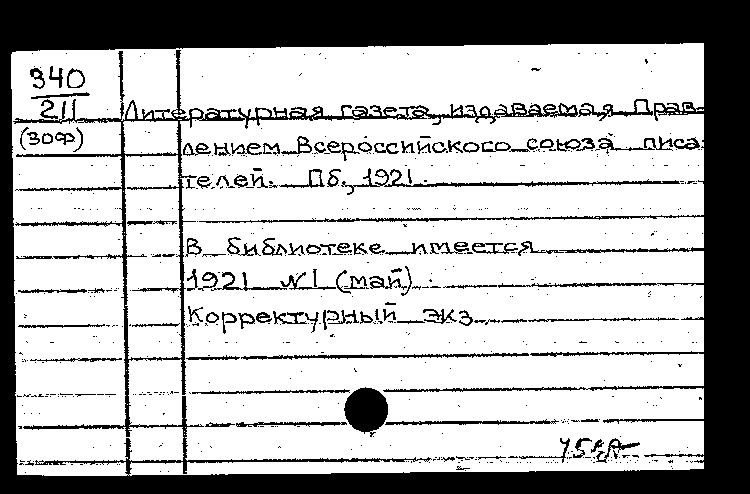 340
211 Литературная газета, издаваемая Прав-
(ЗОФ)
лением Всероссийского союза писа-
телей. Пб., 1921.
В библиотеке имеется
1921 №1 (май)
Корректурный экз.